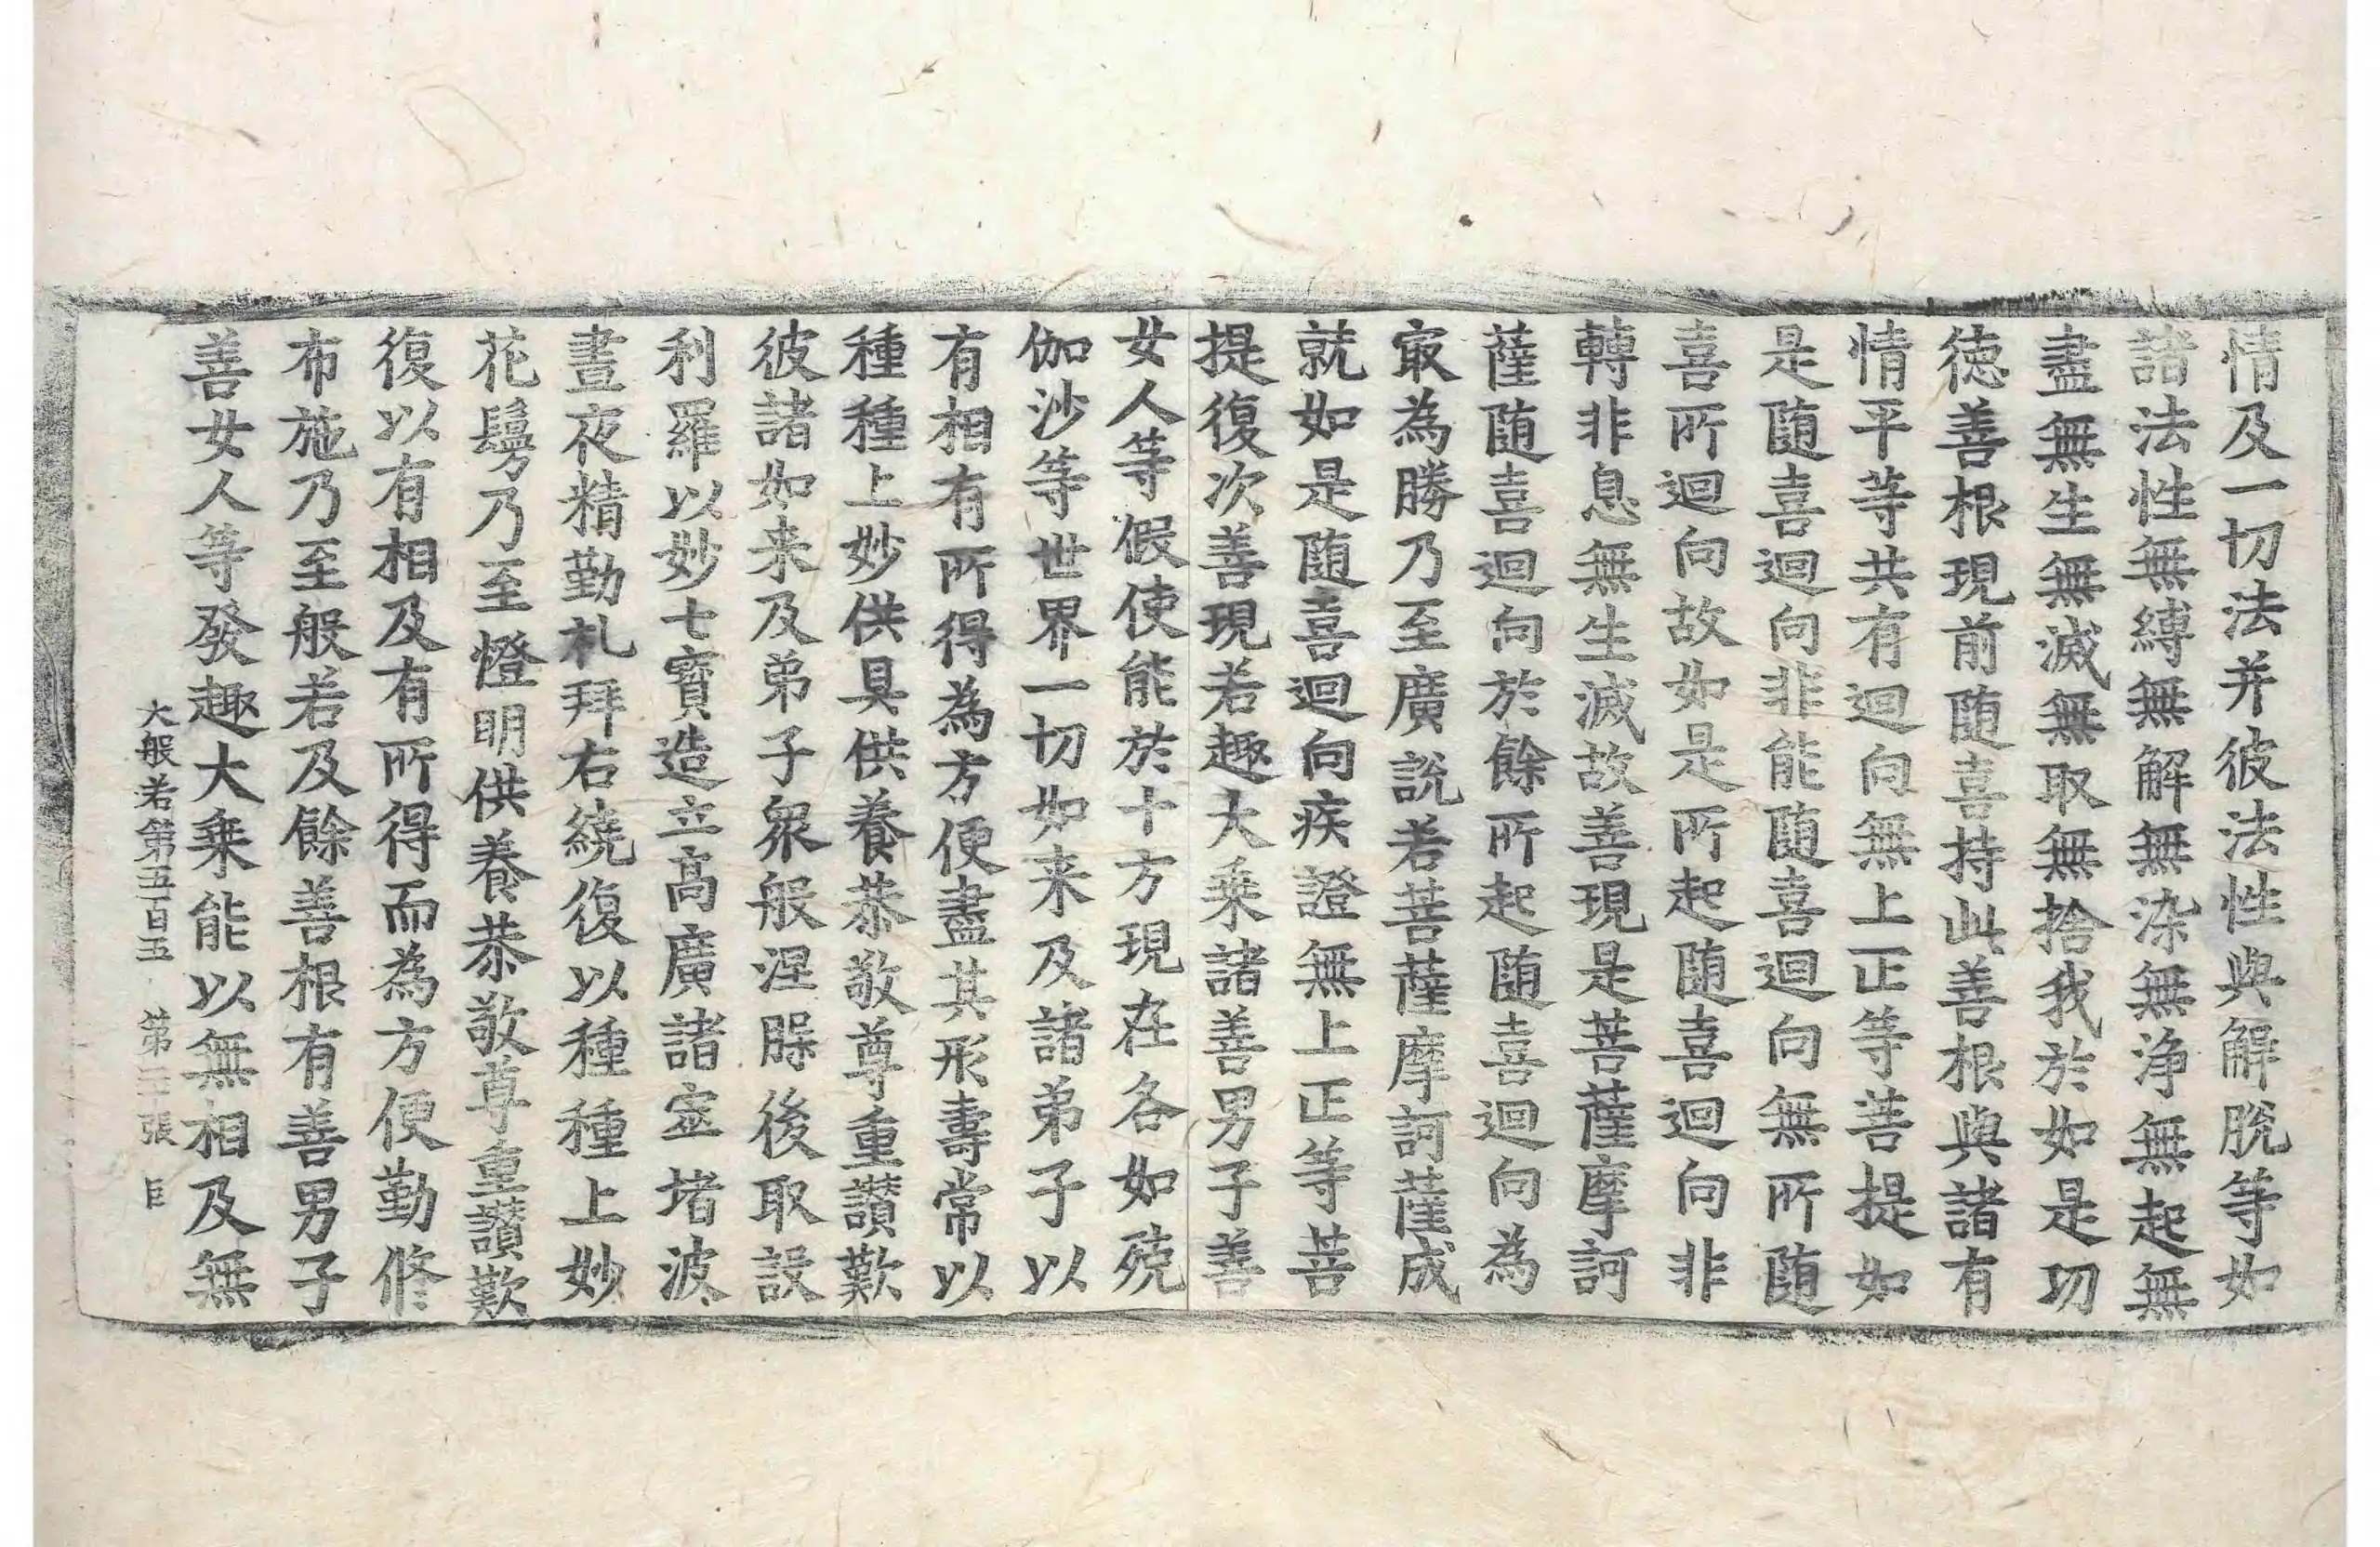 情及一切法并彼法性與解脫等如
諸法性無縛無解無染無淨無起無
盡無生無滅無取無捨我於如是功
徳善根現前随喜持此善根與諸有
情平等共有迴向無上正等菩提如
是随喜迴向非能随喜迴向無所随
喜所迴向故如是所起随喜迴向非
轉非息無生滅故善現是菩薩摩訶
薩随喜迴向於餘所起随喜迴向為
㝡為勝乃至廣說若菩薩摩訶薩成
就如是随喜迴向疾證無上正等菩
提復次善現若趣大乗諸善男子善
女人等假使能於十方現在各如殑
伽沙等世界一切如来及諸弟子以
有相有所得為方便盡其形壽常以
種種上妙供具供養恭敬尊重讃歎
彼諸如来及弟子衆般涅槃後取設
利羅以妙七寳造立高廣諸窣堵波
晝夜精勤礼拜右繞復以種種上妙
花鬘乃至燈明供養恭敬尊重讃歎
復以有相及有所得而為方便勤修
布施乃至般若及餘善根有善男子
善女人等發趣大乗能以無相及無
大般若第五百五 第三張 臣